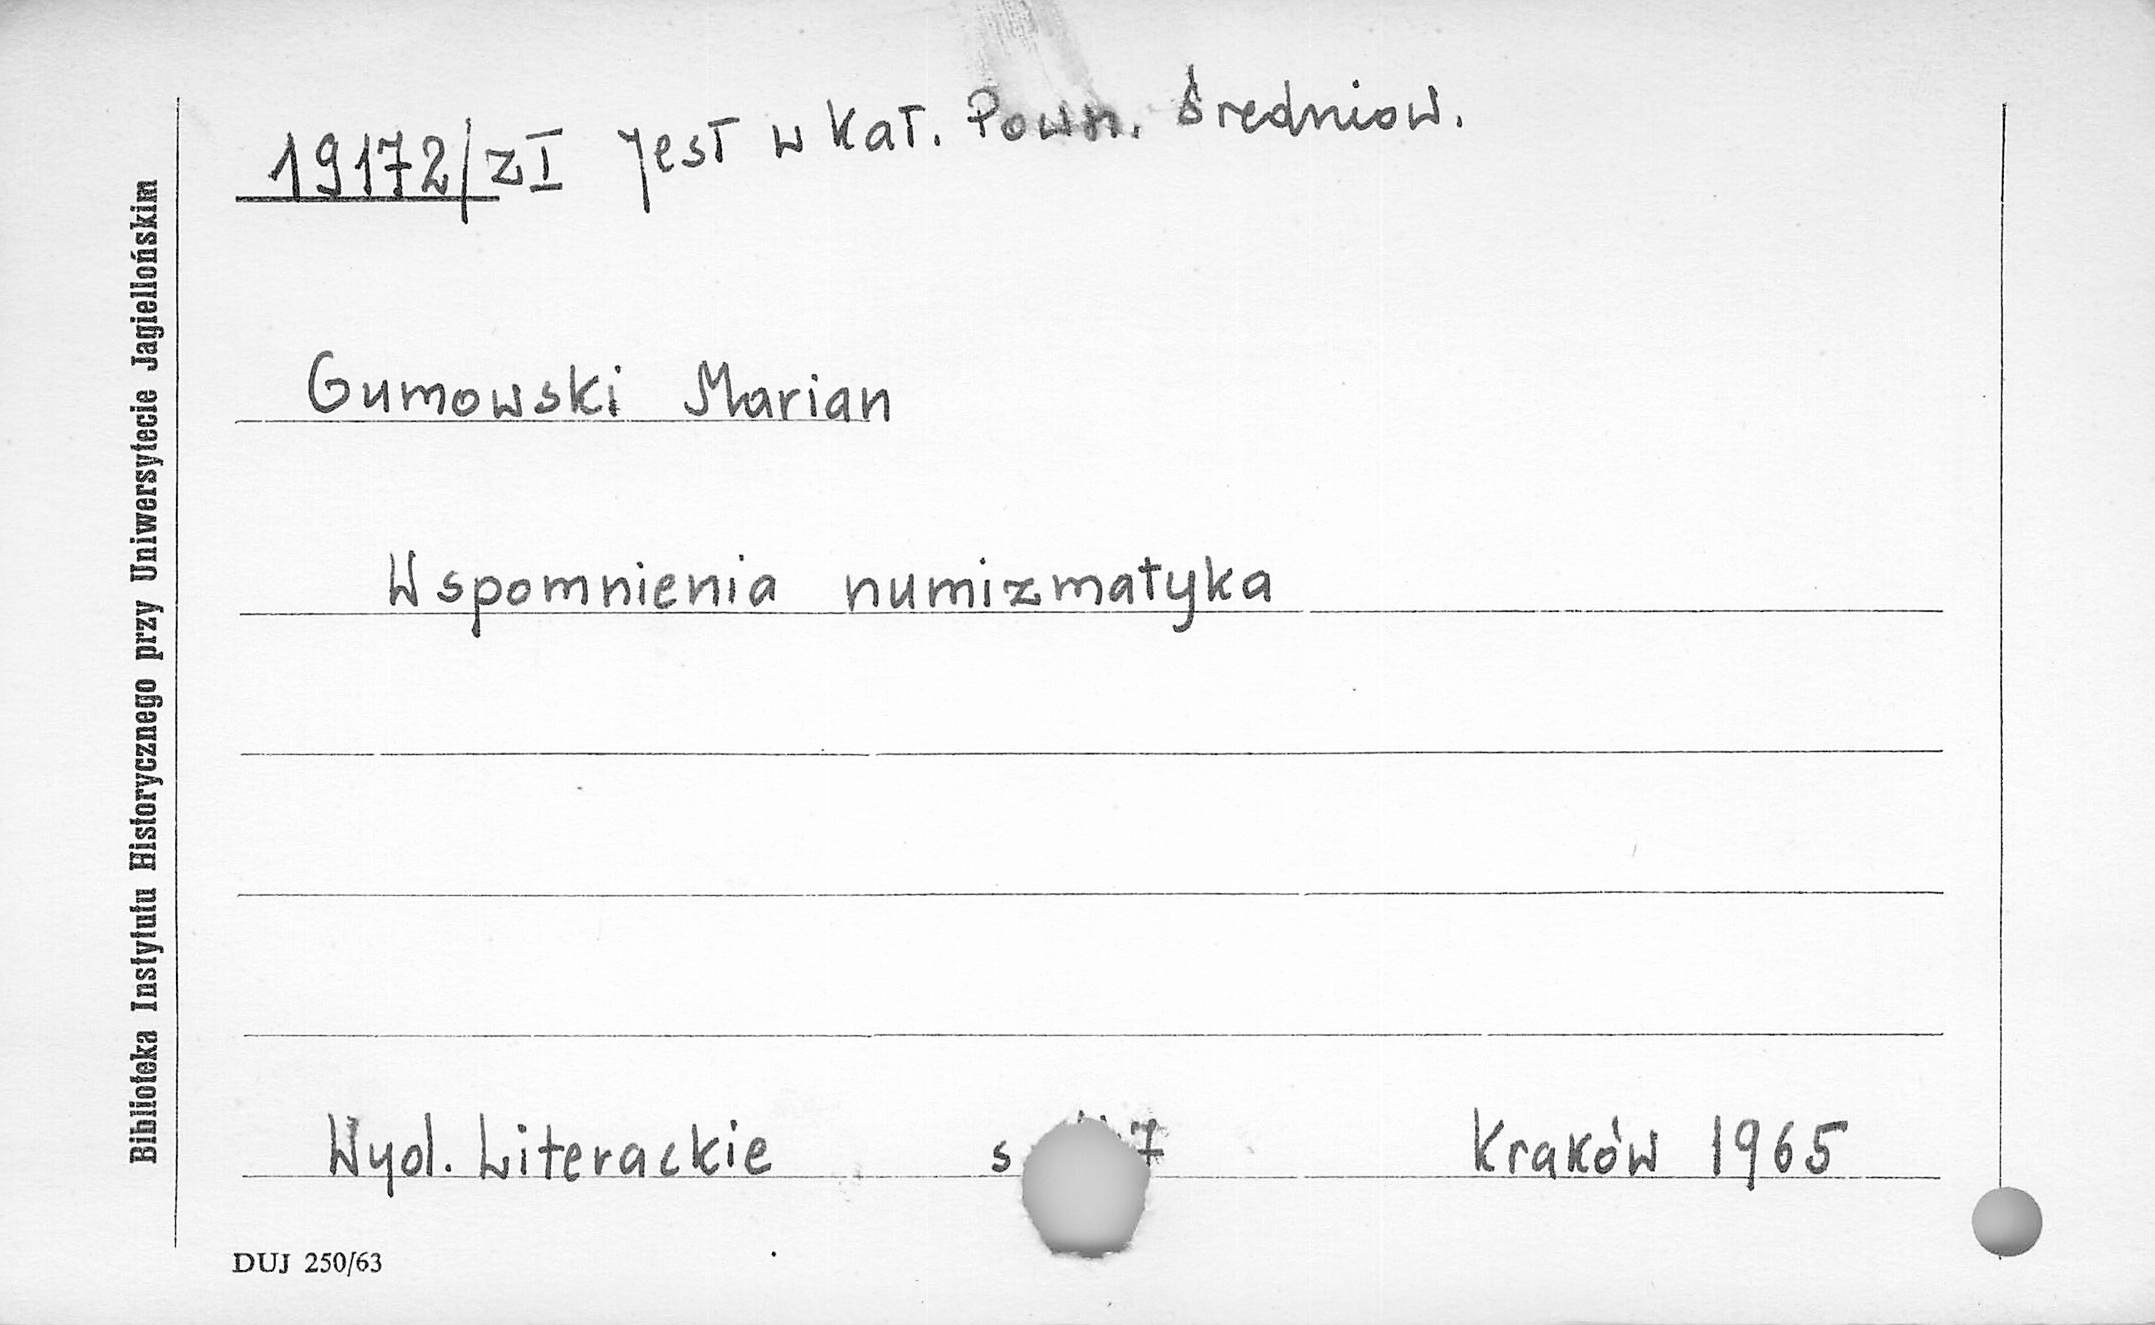 19172/zI jest w kat. Pown. średniow.
Gumowski Marian
Wspomnienia numizmatyka
Wyd. Literackie s 7 Kraków 1965
Biblioteka Instytutu Historycznego przy Uniwersytecie Jagiellońskim
DUJ 250/63